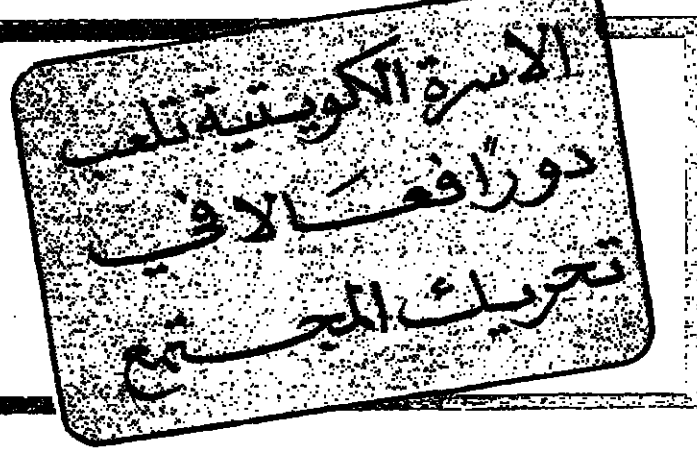 الاسرة الكويتية تلعب
دوراً فعالا في
تحريك المجتمع